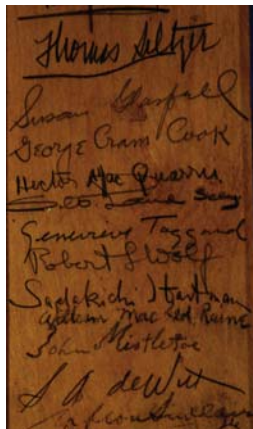 Thomas Seltzer
Susan Glaspell
George Cram Cook
Hector MacQuarrie
Genevieve Taggard
Robert L Wolf
Sadakichi Hartmann
William MacLeod Raine
John Mistletoe
S A deWitt